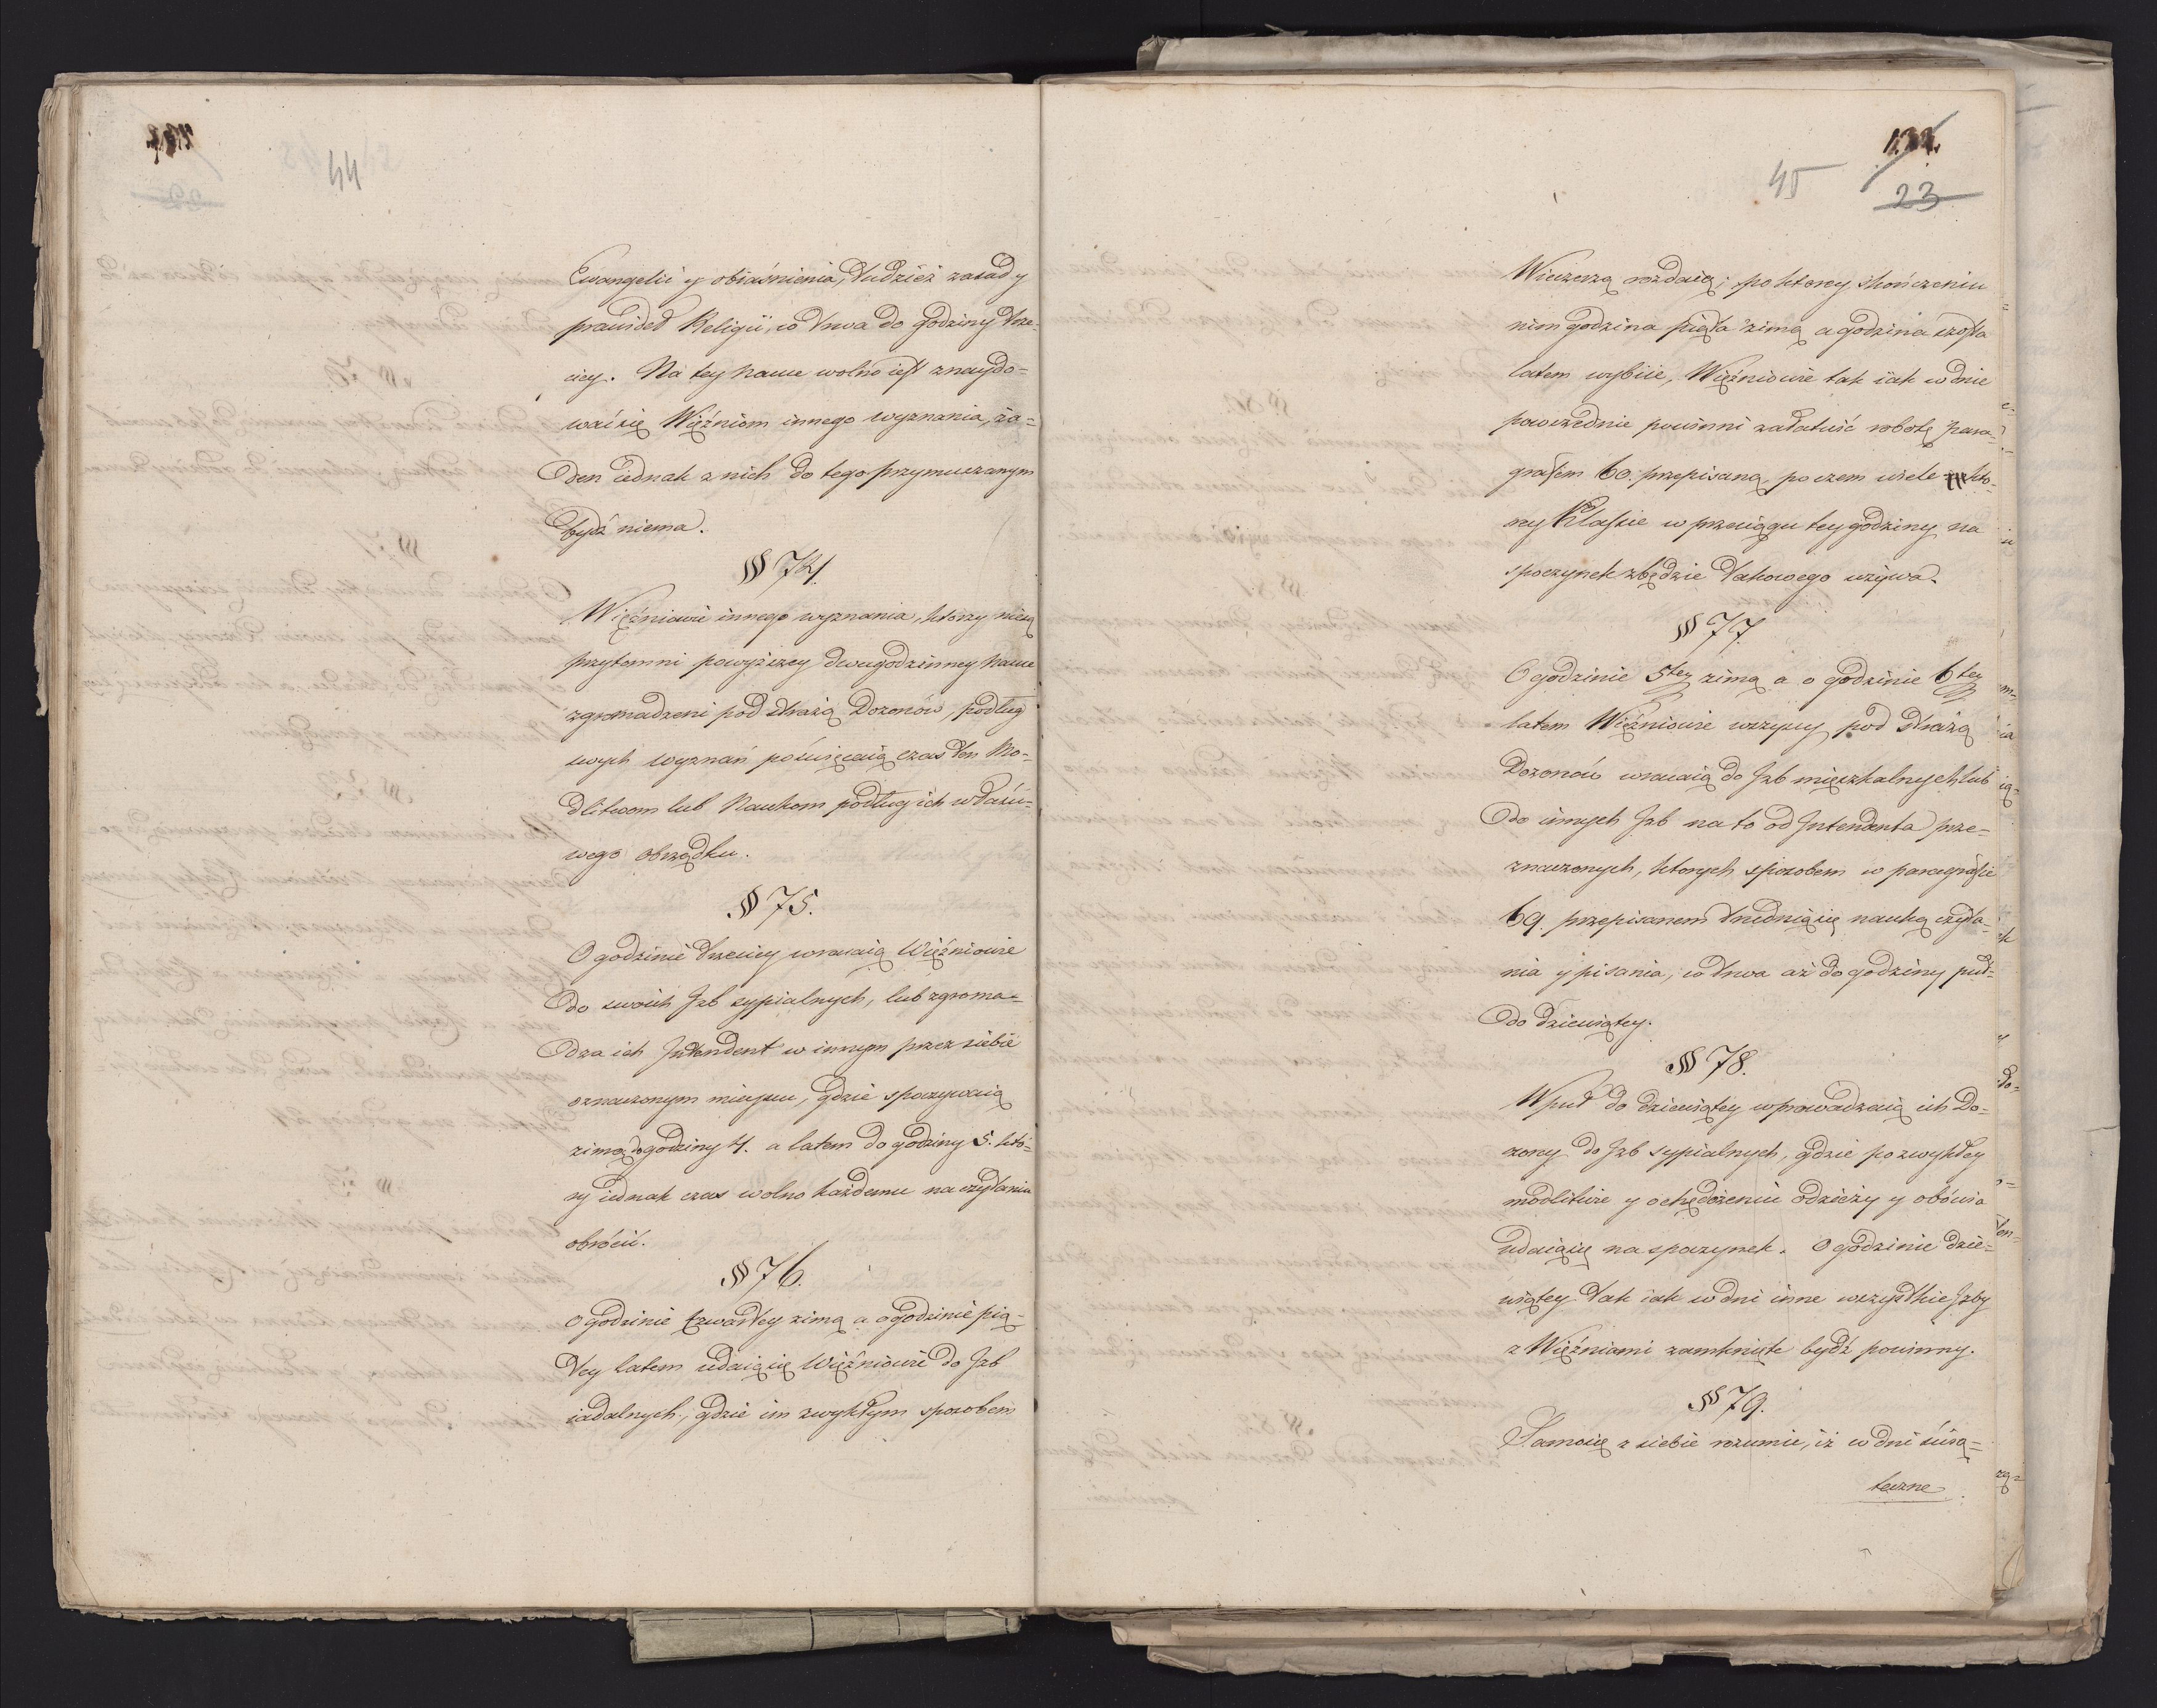 44
Ewangelii y obiaśnienia, tudzież zasady
prawideł Religii, co trwa do godziny trze-
ciey. Na tey nauce wolno iest znaydo-
wać się Więźniom innego wyznania, ża-
den iednak z nich do tego przymuszanym
bydź niema.
§ 74.
Więźniowie innego wyznania, ktorzy niesą
przytomni powyższey dwugodzinney nauce
zgromadzeni pod strażą Dozorców, podług
swych wyznań poświęcaią czas ten Mo-
dlitwom lub Naukom podług ich właści-
wego obrządku.
§ 75.
O godzinie trzeciey wracaią Więźniowie
do swoich Jzb sypialnych, lub zgroma-
dza ich Jntendent w innym przez siebie
oznaczonym mieyscu, gdzie spoczywaią
zimą do godziny 4. a latem do godziny 5. któ-
ry iednak czas wolno każdemu na czytaniu
obrócić.
§ 76.
O godzinie czwartey zimą a o godzinie pią-
tey latem udaią się Więźniowie do Jzb
iadalnych, gdzie im zwykłym sposobem
45
23
Wieczerzą rozdaią; po ktorey skończeniu
nim godzina piąta zimą a godzina szosta
latem wybiie, Więźniowie tak iak w dnie
powszednie powinni załatwić robotę para-
grafem 60. przepisaną, poczem wiele kto-
rey Klassie w przeciągu tey godziny na
spoczynek zbędzie takowego używa.
§ 77.
O godzinie 5tey zimą a o godzinie 6tey
latem Więźniowie wszyscy pod strażą
Dozorców wracaią do Jzb mieszkalnych lub
do innych Jzb na to od Jntendenta prze-
znaczonych, ktorych sposobem w paragrafie
69. przepisanem trudnią się nauką czyta-
nia y pisania, co trwa aż do godziny puł-
do dziewiątey.
§ 78.
W puł do dziewiątey wprowadzaią ich Do-
zorcy do Jzb sypialnych, gdzie po zwykłey
modlitwie y ochędożeniu odzieży y obówia
udaią się na spoczynek. O godzinie dzie-
wiątey tak iak w dni inne wszystkie Jzby
z Więźniami zamknięte bydź powinny.
§ 79.
Samo się z siebie rozumie, iż w dni świą-
teczne